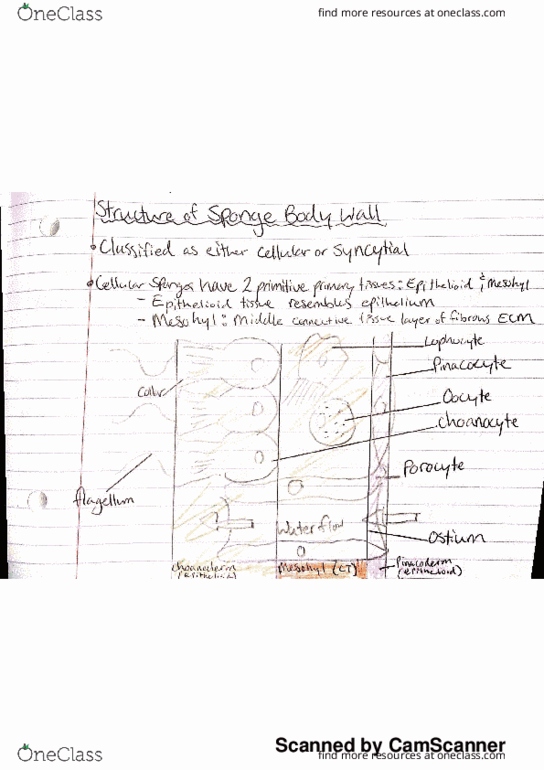 OneClass
find more resources at oneclass.com
Structure of Sponge Body Wall
• Classified as either cellular or Syncytial
• Cellular Sponges have 2 primitive primary tissues: Epithelioid & Mesohyl
- Epithelioid tissue resembles epithelium
- Mesohyl: Middle connective tissue layer of fibrous ECM
Lophocyte
Pinacocyte
Collar
Oocyte
Choanocyte
Porocyte
flagellum
Water flow
Ostium
Choanoderm
(epithelioid)
Mesohyl (CT)
Pinacoderm
(epithelioid)
Scanned by CamScanner
OneClass
find more resources at oneclass.com